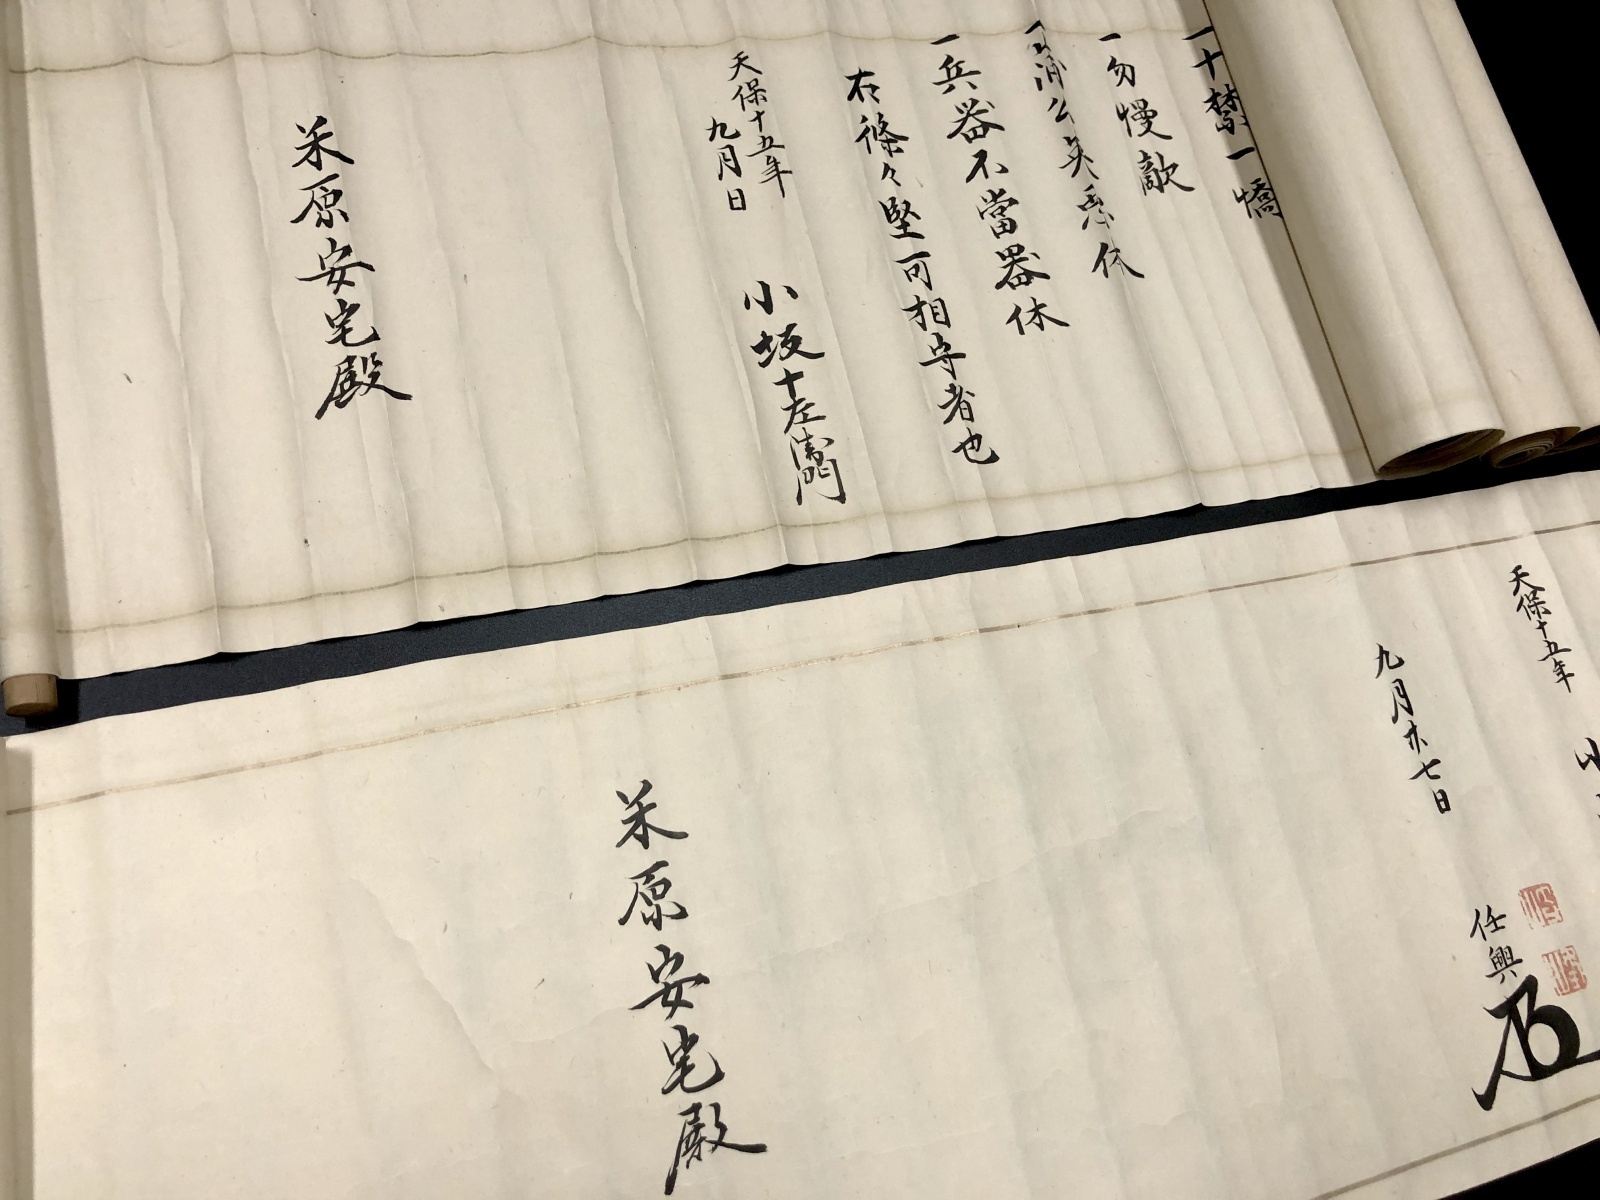 一十禁一憍
一勿慢敵
一兵器不當器休
右條々堅可相守者也
天保十五年
九月日
小坂十左衛門
米原安宅殿
天保十五年
九月廿七日
任興
米原安宅殿